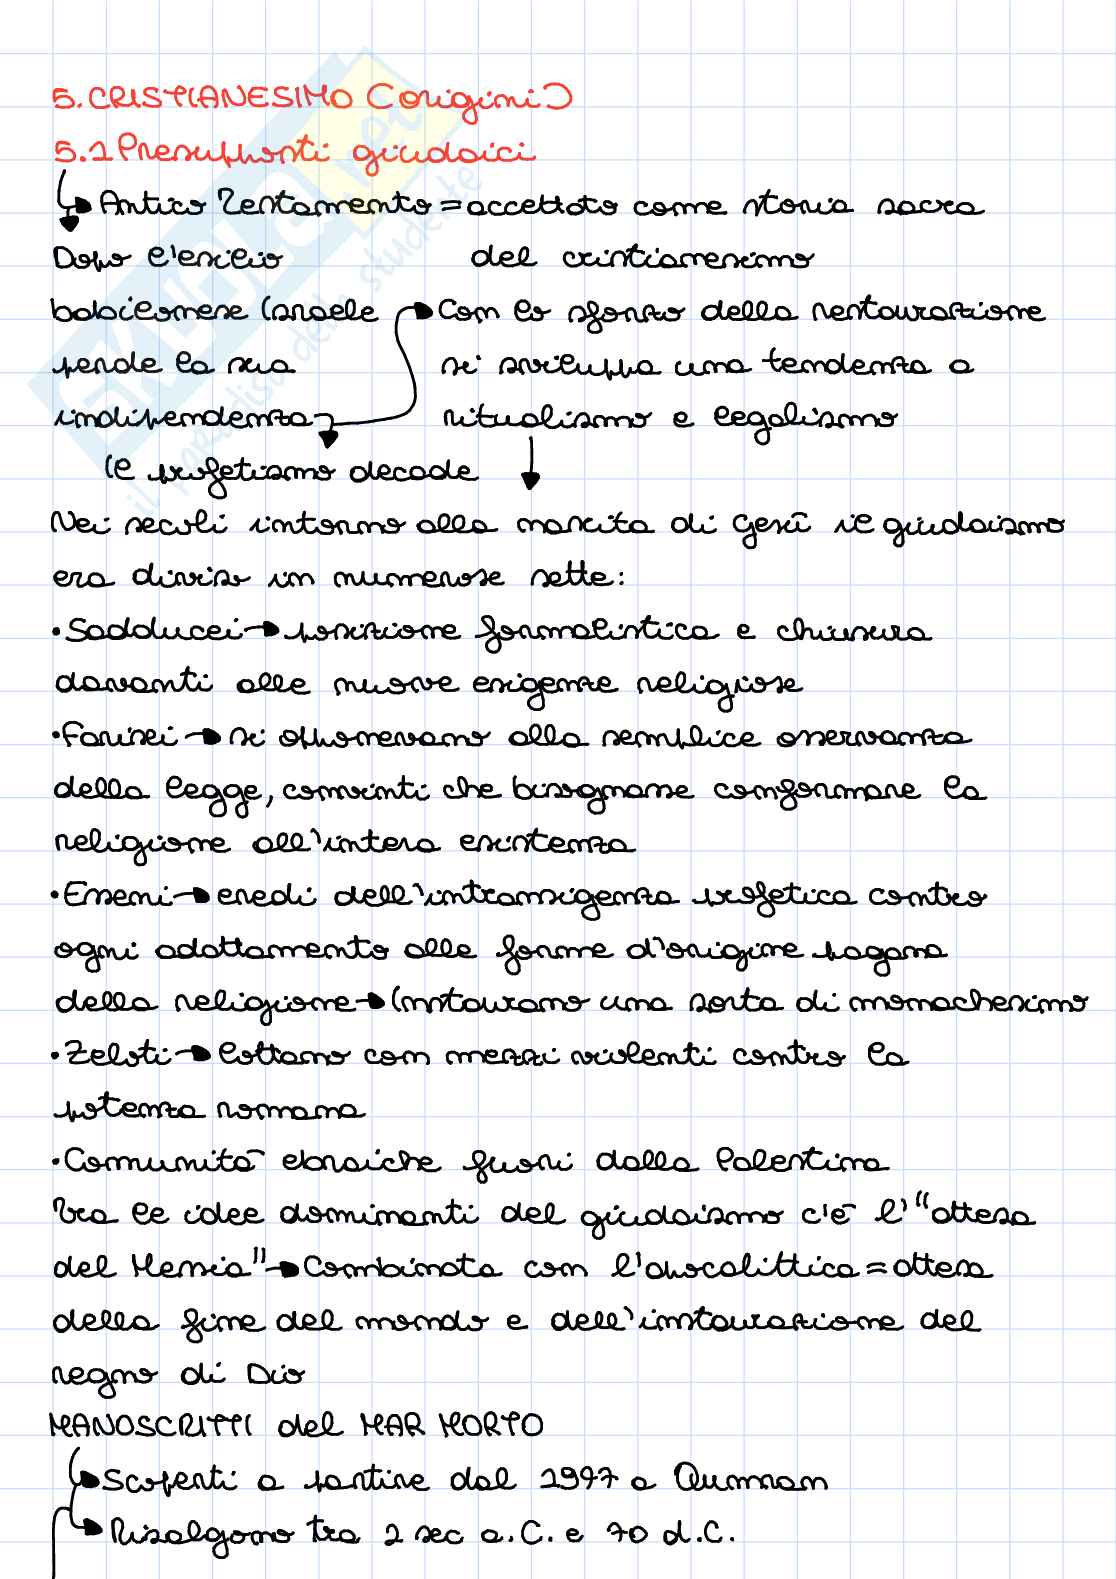 5. CRISTIANESIMO (origini)
5.1 Presupposti giudaici
Antico Testamento = accettato come storia sacra
del cristianesimo
Dopo l'esilio
babilonese Israele
perde la sua
indipendenza
Il profetismo decade
Con lo sforzo della restaurazione
si sviluppa una tendenza a
ritualismo e legalismo
Nei secoli intorno alla nascita di Gesù il giudaismo
era diviso in numerose sette:
• Sadducei → posizione formalistica e chiusura
davanti alle nuove esigenze religiose
• Farisei → si opponevano alla semplice osservanza
della legge, convinti che bisognasse conformare la
religione all'intera esistenza
• Esseni → eredi dell'intransigenza profetica contro
ogni adattamento alle forme d'origine pagana
della religione → Instaurano una sorta di monachesimo
• Zeloti → lottano con mezzi violenti contro la
potenza romana
• Comunità ebraiche fuori dalla Palestina
Tra le idee dominanti del giudaismo c'è l'"attesa
del Messia" → Combinata con l'apocalittica = attesa
della fine del mondo e dell'instaurazione del
regno di Dio
MANOSCRITTI del MAR MORTO
Scoperti a partire dal 1947 a Qumran
Risalgono tra 2 sec a.C. e 70 d.C.
SKUOLA.net
il paradiso dello studente